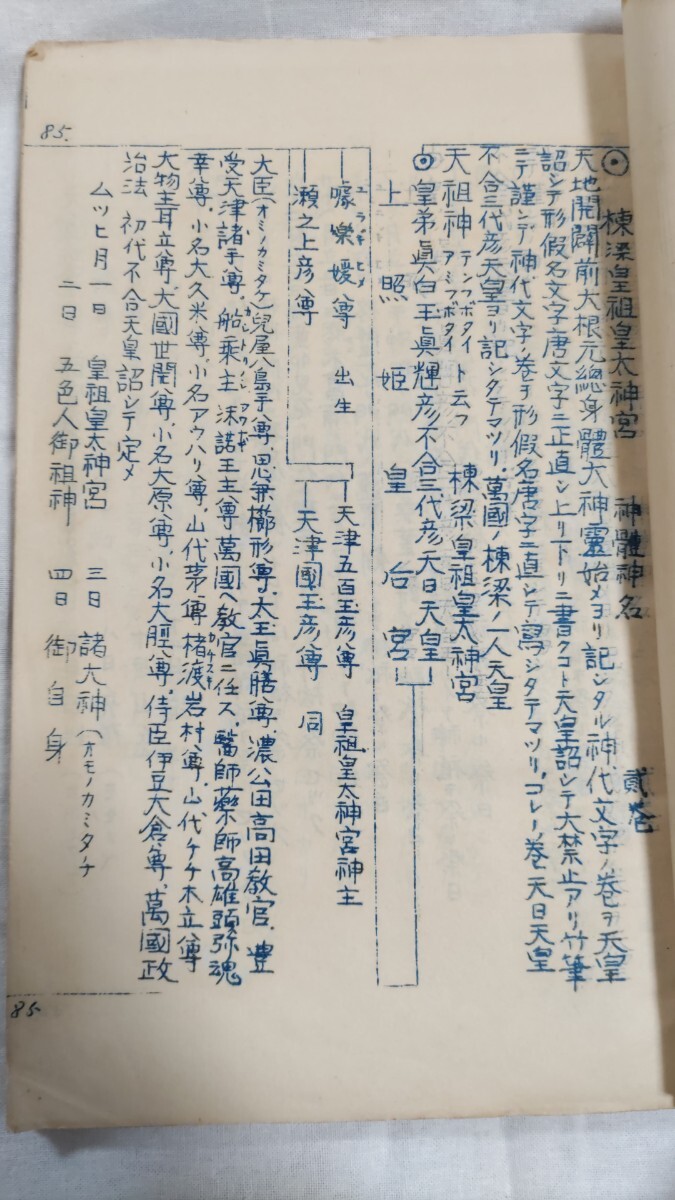 85.
⦿ 棟梁皇祖皇太神宮 神體神名 貳卷
天地開闢前大根元總身體大神靈始メヨリ記シタル神代文字ノ卷ヲ天皇
詔シテ形假名文字唐文字ニ正直シ上リ下リニ書クコト天皇詔シテ大禁止アリ竹筆
ニテ謹ンデ神代文字ノ卷ヲ形假名唐字ニ直シテ寫シタテマツリ、コレノ卷天日天皇
不合三代彦天皇ヨリ記シタテマツリ、萬國ノ棟梁ノ一人天皇
天祖神 テンソボタイ アミフボタイ ト云フ 棟梁皇祖皇太神宮
⦿ 皇弟眞白玉眞輝彦不合三代彦天日天皇
上照姫皇后宮
媛樂媛尊 出生 天津五百玉彦尊 皇祖皇太神宮神主
瀬之上彦尊 天津國玉彦尊 同
大臣(オミノカミタケ)兒屋八島手尊、思兼櫛形尊、太玉眞膳尊、濃公田高田教官、豊
受天津諸手尊、船乘主 沫諾王主尊萬國ヘ教官ニ任ス、醫師藥師高雄頭弥魂
幸尊、小名大久米尊、小名アウハリ尊、山代茅尊楮渡岩村尊、山代チチ木立尊
大物主耳立尊、大國世閉尊、小名大原尊、小名大脛尊、侍臣伊豆大倉尊、萬國政
治法 初代不合天皇詔シテ定メ
ムツヒ月一日 皇祖皇太神宮 三日 諸大神(オモノカミタチ
二日 五色人御祖神 四日 御自身
85